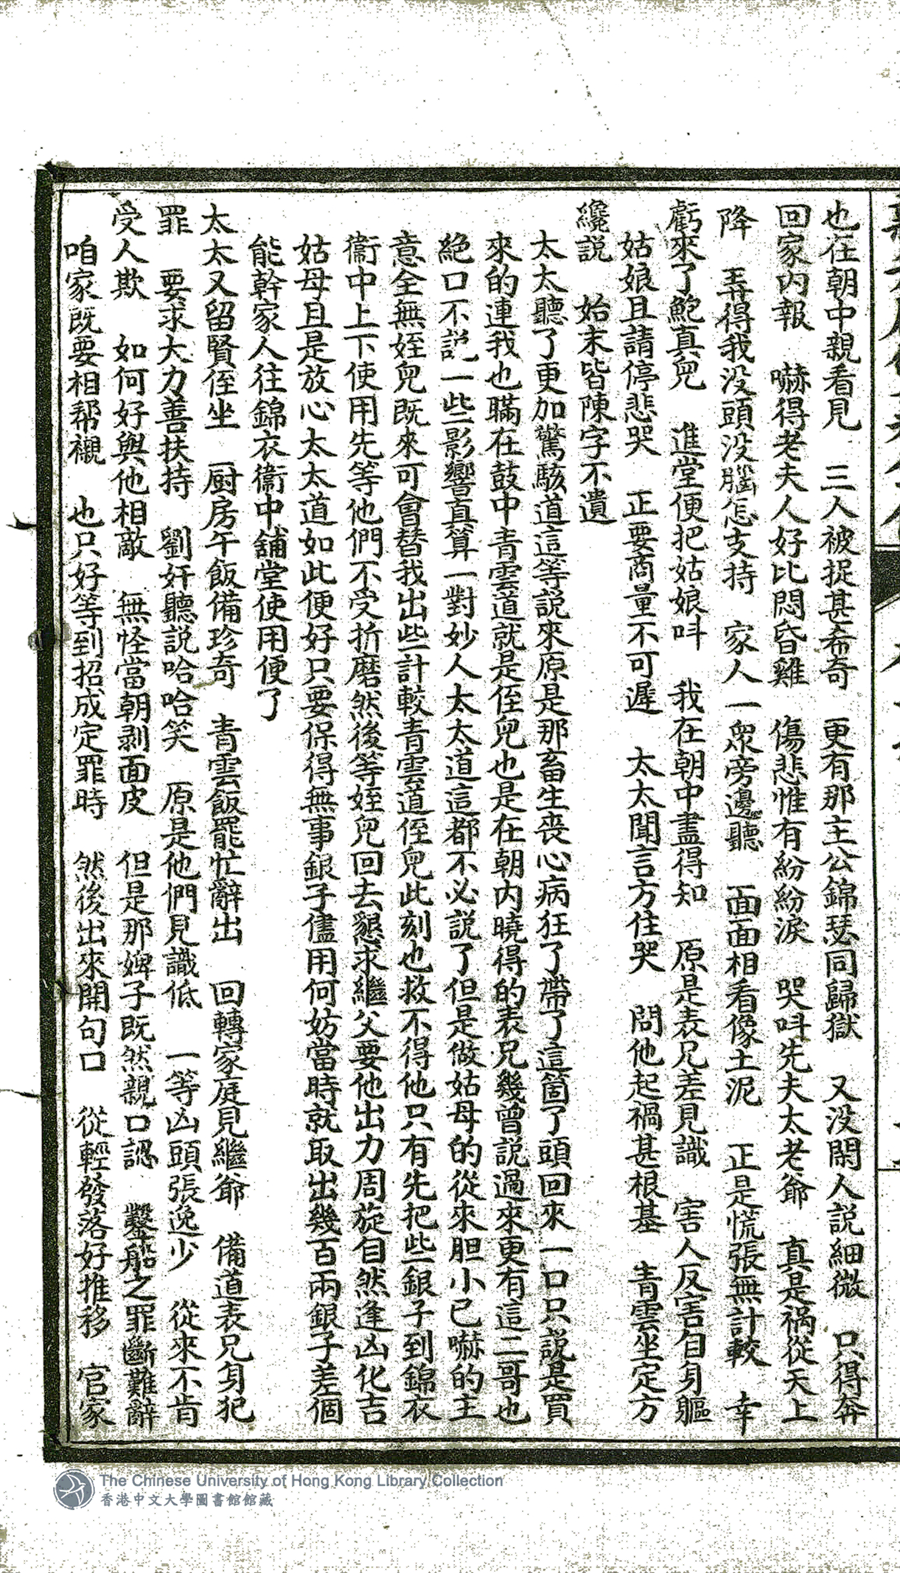 也在朝中親看見　三人被捉甚希奇　更有那主公錦瑟同歸獄　又没閒人説細微　只得奔
回家内報　嚇得老夫人好比悶昏雞　傷悲惟有紛紛淚　哭呌先夫太老爺　真是禍從天上
降　弄得我没頭没腦怎支持　家人一衆旁邊聽　面面相看像土泥　正是慌張無計較　幸
虧來了鮑真兒　進堂便把姑娘呌　我在朝中盡得知　原是表兄差見識　害人反害自身軀
姑娘且請停悲哭　正要商量不可遲　太太聞言方住哭　問他起禍甚根基　青雲坐定方
纔説　始末皆陳字不遺
太太聽了更加驚駭道這等説來原是那畜生喪心病狂了帶了這箇了頭回來一口只説是買
來的連我也瞞在鼓中青雲道就是侄兒也是在朝内曉得的表兄幾曾説過來更有這二哥也
絕口不説一些影響真算一對妙人太太道這都不必説了但是做姑母的從來胆小已嚇的主
意全無姪兒既來可會替我出些計較青雲道侄兒此刻也救不得他只有先把些銀子到錦衣
衞中上下使用先等他們不受折磨然後等姪兒回去懇求繼父要他出力周旋自然逢凶化吉
姑母且是放心太太道如此便好只要保得無事銀子儘用何妨當時就取出幾百兩銀子差個
能幹家人往錦衣衞中舖堂使用便了
太太又留賢侄坐　厨房午飯備珍奇　青雲飯罷忙辭出　回轉家庭見繼爺　備道表兄身犯
罪　要求大力善扶持　劉奸聽説哈哈笑　原是他們見識低　一等凶頭張逸少　從來不肯
受人欺　如何好與他相敵　無怪當朝剥面皮　但是那婢子既然親口認　鑿船之罪斷難辭
咱家既要相帮襯　也只好等到招成定罪時　然後出來開句口　從輕發落好推移　官家
The Chinese University of Hong Kong Library Collection
香港中文大學圖書館館藏